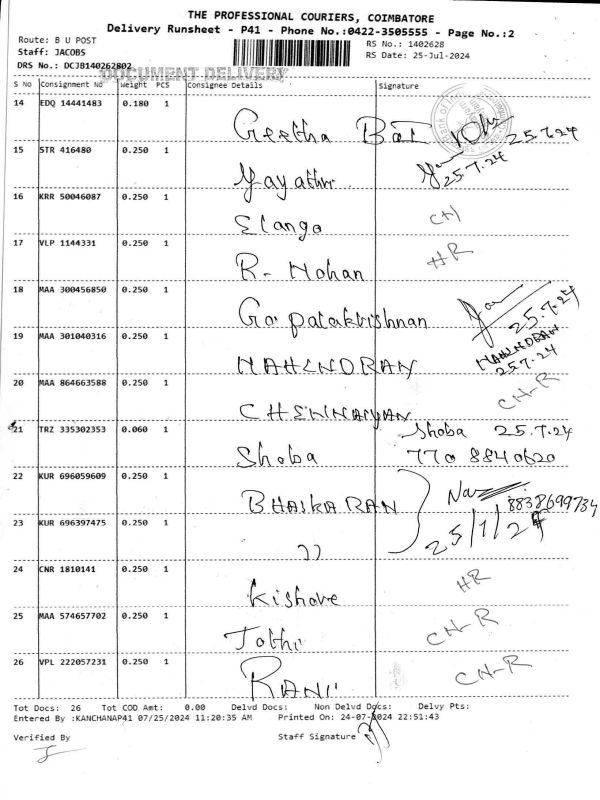 THE PROFESSIONAL COURIERS, COIMBATORE
Delivery Runsheet - P41 - Phone No.:0422-3505555 - Page No.:2
Route: B U POST
RS No.: 1402628
Staff: JACOBS
RS Date: 25-Jul-2024
DRS No.: DCJB140262802
DOCUMENT DELIVERY
S No Consignment No Weight PCS Consignee Details Signature
14 EDQ 14441483 0.180 1 Geetha Bai 25.7.24
15 STR 416480 0.250 1 Gayathri 25.7.24
16 KRR 50046087 0.250 1 Elango CH
17 VLP 1144331 0.250 1 R. Mohan HR
18 MAA 300456850 0.250 1 Gopalakrishnan 25.7.24
19 MAA 301040316 0.250 1 MAHENDRAN MAHENDRAN 25.7.24
20 MAA 864663588 0.250 1 CHENNAIYAN CH-R
21 TRZ 335302353 0.060 1 Shoba Shoba 25.7.24
770 8840620
22 KUR 696059609 0.250 1 BHASKARAN 8838699734
23 KUR 696397475 0.250 1 ” 25/7/24
24 CNR 1810141 0.250 1 Kishore HR
25 MAA 574657702 0.250 1 Jothi CH-R
26 VPL 222057231 0.250 1 RANI CH-R
Tot Docs: 26 Tot COD Amt: 0.00 Delvd Docs: Non Delvd Docs: Delvy Pts:
Entered By :KANCHANAP41 07/25/2024 11:20:35 AM Printed On: 24-07-2024 22:51:43
Verified By Staff Signature